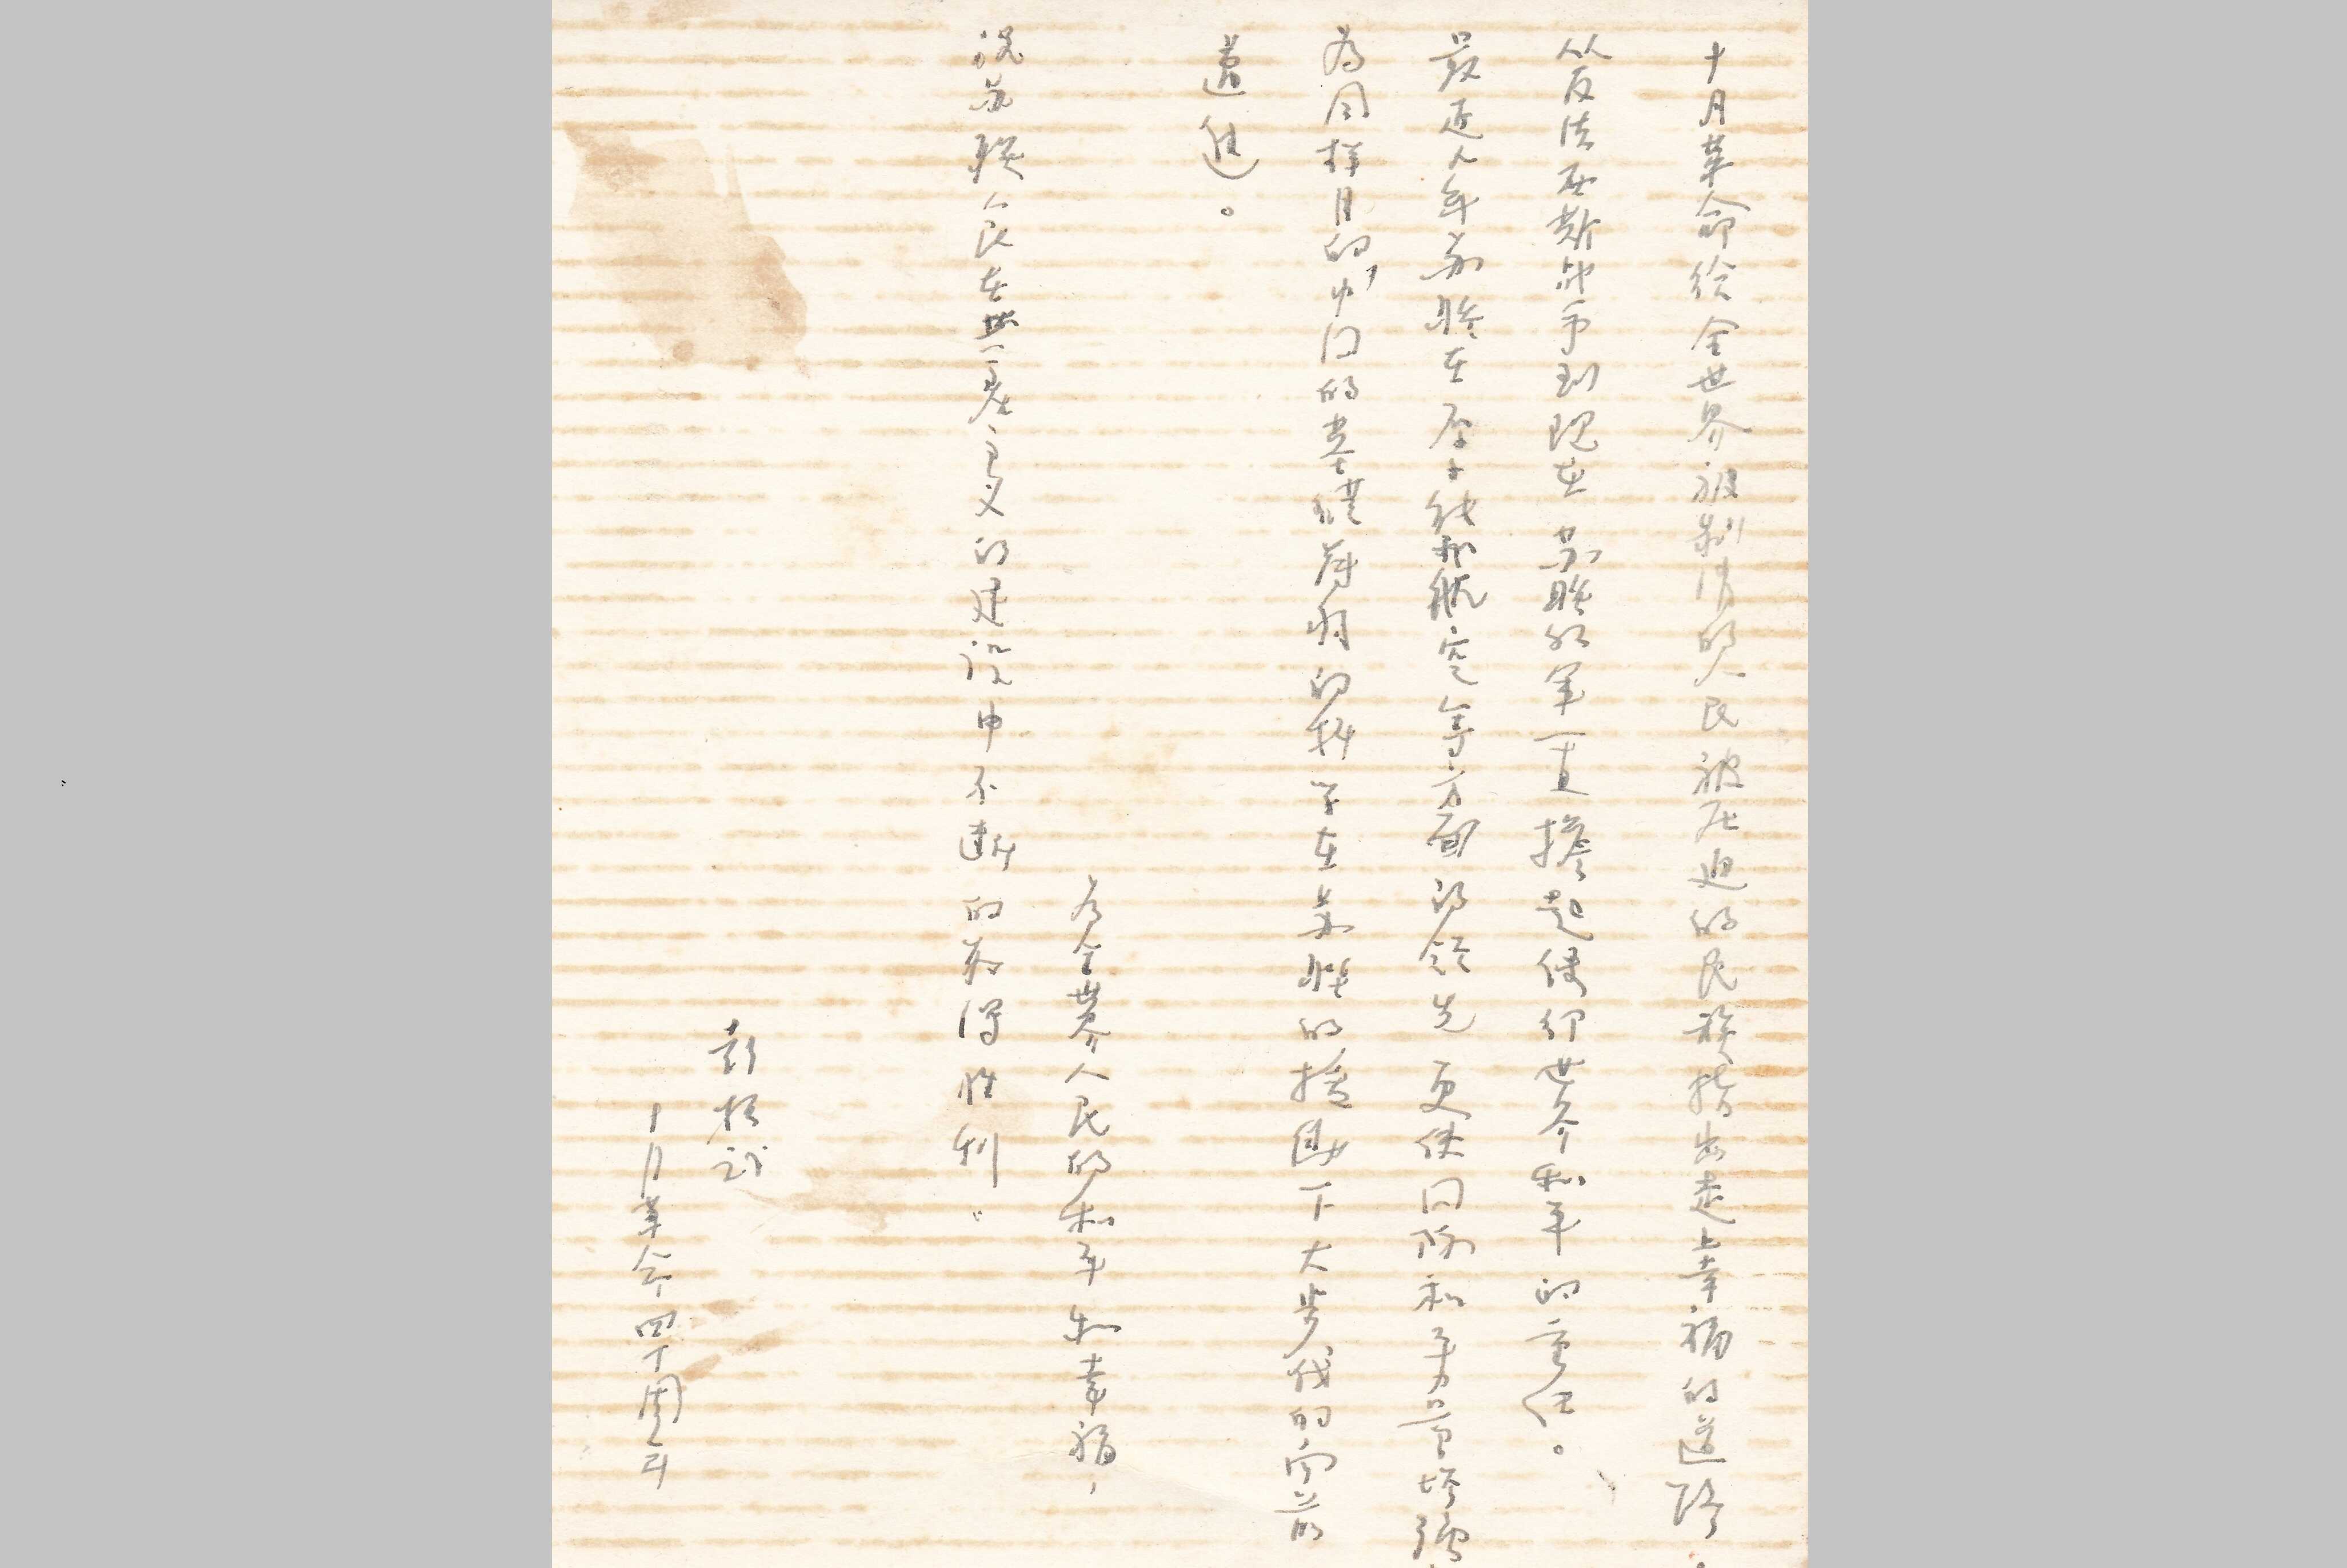 十月革命给全世界被剥削的人民被压迫的民族指出走上幸福的道路。
从反法西斯战争到现在苏联红军一直担起保卫世界和平的重任。
最近几年苏联在原子能和航空等方面的领先更使国防和平力量增强
为同样目的,中国的基础薄弱的科学在苏联的援助下大步伐的向前
迈进。
为全世界人民的和平和幸福,
祝苏联人民在共产主义的建设中不断的获得胜利。
彭桓武
十月革命四十周年